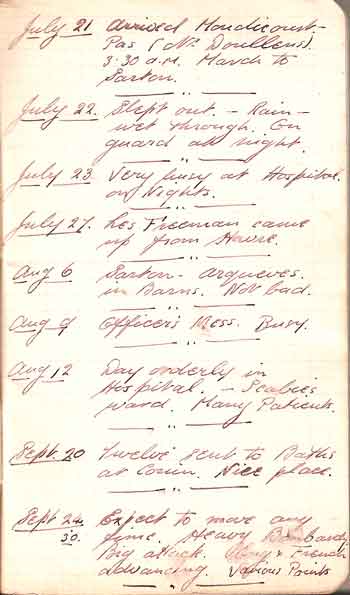 July 21 arrived Mondicourt-
Pas (Nr. Doullens).
3.30 a.m. March to
Sarton.
July 22. Slept out. - Rain -
wet through. On
guard all night.
July 23. Very busy at Hospital.
on Nights.
July 27. Les Freeman came
up from Havre.
Aug 6 Sarton - Arqueves.
in Barns. Not bad.
Aug 9 Officers Mess. Busy.
Aug 12 Day orderly in
Hospital. - Scabies
ward. Many Patients.
Sept. 20 Twelve sent to Baths
at Couin. Nice place.
Sept 24 Expect to move any
30. time. Heavy Bombardy
Big attack. & French
advancing. Various Points